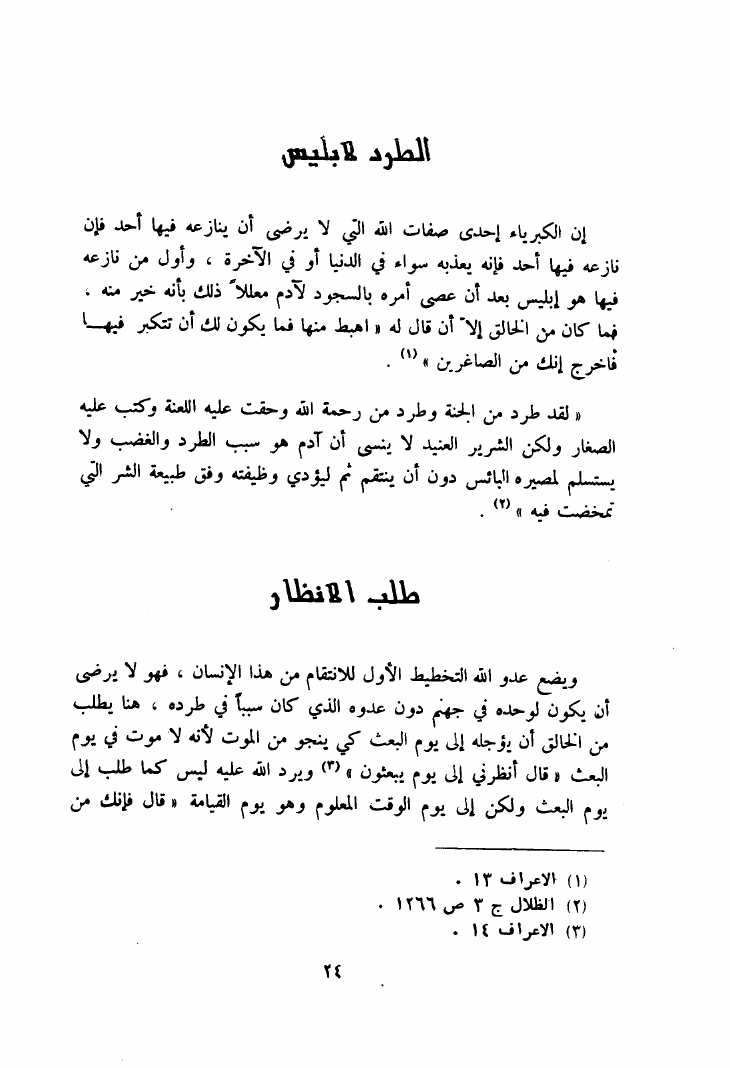 الطرد لابليس
إن الكبرياء إحدى صفات الله التي لا يرضى أن ينازعه فيها أحد فإن
نازعه فيها أحد فإنه يعذبه سواء في الدنيا أو في الآخرة ، وأول من نازعه
فيها هو إبليس بعد أن عصى أمره بالسجود لآدم معللاً ذلك بأنه خير منه ،
فما كان من الخالق إلاّ أن قال له « اهبط منها فما يكون لك أن تتكبر فيهـــا
فاخرج إنك من الصاغرين » (١) .
« لقد طرد من الجنة وطرد من رحمة الله وحقت عليه اللعنة وكتب عليه
الصغار ولكن الشرير العنيد لا ينسى أن آدم هو سبب الطرد والغضب ولا
يستسلم لمصيره البائس دون أن ينتقم ثم ليؤدي وظيفته وفق طبيعة الشر التي
تمخضت فيه » (٢) .
طلب الانظار
ويضع عدو الله التخطيط الأول للانتقام من هذا الإنسان ، فهو لا يرضى
أن يكون لوحده في جهنم دون عدوه الذي كان سبباً في طرده ، هنا يطلب
من الخالق أن يؤجله إلى يوم البعث كي ينجو من الموت لأنه لا موت في يوم
البعث « قال أنظرني إلى يوم يبعثون » (٣) ويرد الله عليه ليس كما طلب إلى
يوم البعث ولكن إلى يوم الوقت المعلوم وهو يوم القيامة « قال فإنك من
(١) الاعراف ١٣ .
(٢) الظلال ج ٣ ص ١٢٦٦ .
(٣) الاعراف ١٤ .
٢٤